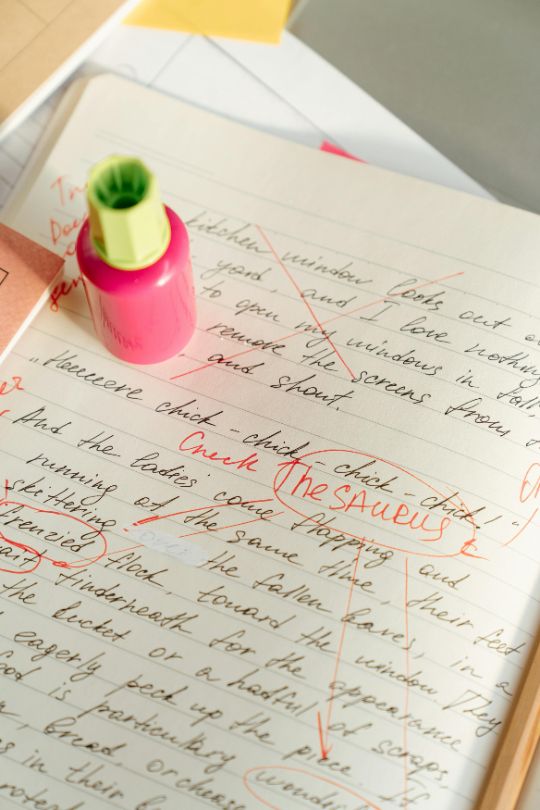 kitchen window looks out o
yard, and I love nothing
to open my windows in fall
remove the screens from
and shout.
„Heeeeere chick - chick - chick - chick!"
Check THESAURUS
And the ladies come flapping and
running at the same time, their feet
skittering over the fallen leaves, in a
frenzied flock, toward the window. They
wait underneath for the appearance
the bucket or a hatful of scraps,
eagerly peck up the
food is particularly wonder
bread, or cheese
es in their